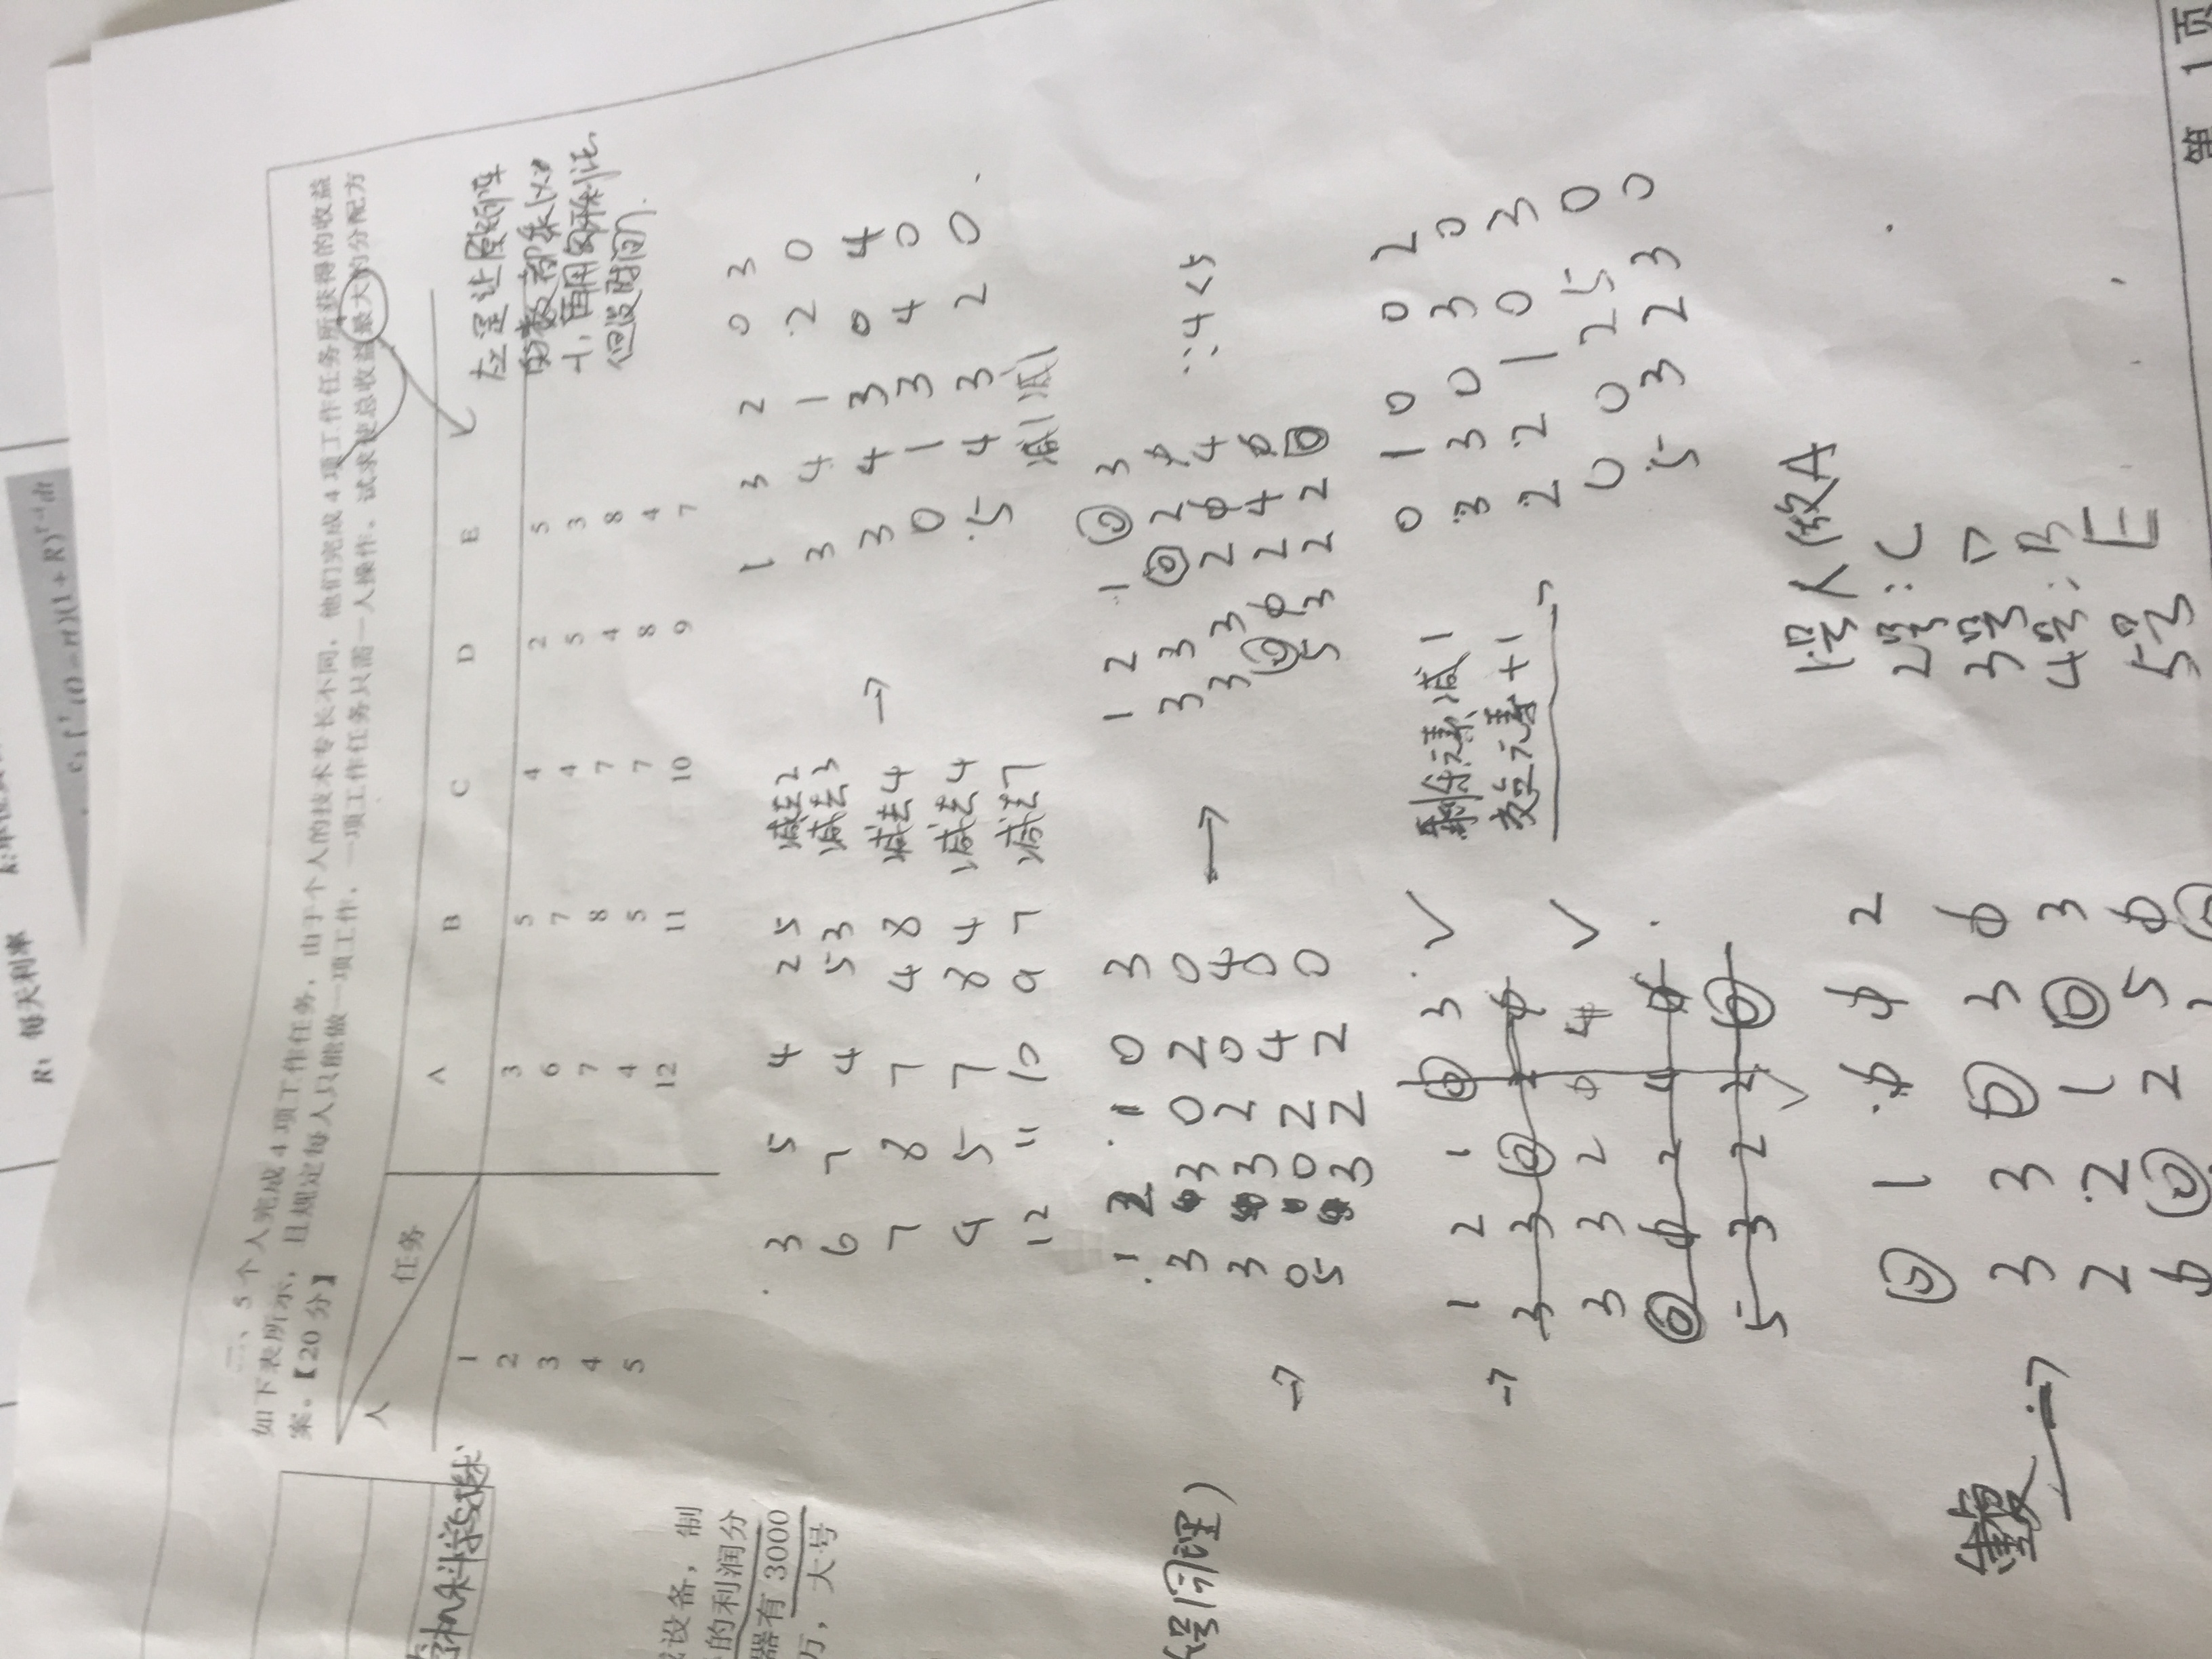 R：每天利率
(Q-rt)(1+R)^{T-t}dt
二、5个人完成4项工作任务，由于个人的技术专长不同，他们完成4项工作任务所获得的收益
如下表所示，且规定每人只能做一项工作，一项工作任务只需一人操作。试求使总收益最大的分配方
案。【20分】
人 任务 A B C D E
1 3 5 4 2 5
2 6 7 4 5 3
3 7 8 7 4 8
4 4 5 7 8 4
5 12 11 10 9 7
应是让原矩阵
的数都乘以
-1，再用匈牙利法，
但没时间了.
设备，制
的利润分
器有3000
万，大号
号同理)
3 5 4 2 5 减去2
6 7 4 5 3 减去3
7 8 7 4 8 减去4
4 5 7 8 4 减去4
12 11 10 9 7 减去7
→
1 3 2 0 3
3 4 1 2 0
3 4 3 0 4
0 1 3 4 0
5 4 3 2 0
减1 减1
→
1 2 1 0 3
3 3 0 2 0
3 3 2 0 4
0 0 2 4 0
5 3 2 2 0
→
1 2 1 0 3
3 3 0 2 0
3 3 2 0 4
0 0 2 4 0
5 3 2 2 0
∵4<5
→
1 2 1 0 3 ✓
3 3 0 2 0
3 3 2 0 4 ✓
0 0 2 4 0
5 3 2 2 0
✓
剩余元素减1
交点元素+1
→
0 1 0 0 2
3 3 0 3 0
2 2 1 0 3
0 0 2 5 0
5 3 2 3 0
重复
→
0 1 0 0 2
3 3 0 3 0
2 2 1 0 3
0 0 2 5 0
1号人做A
2号：C
3号 D
4号：B
5号 E
第 1 页